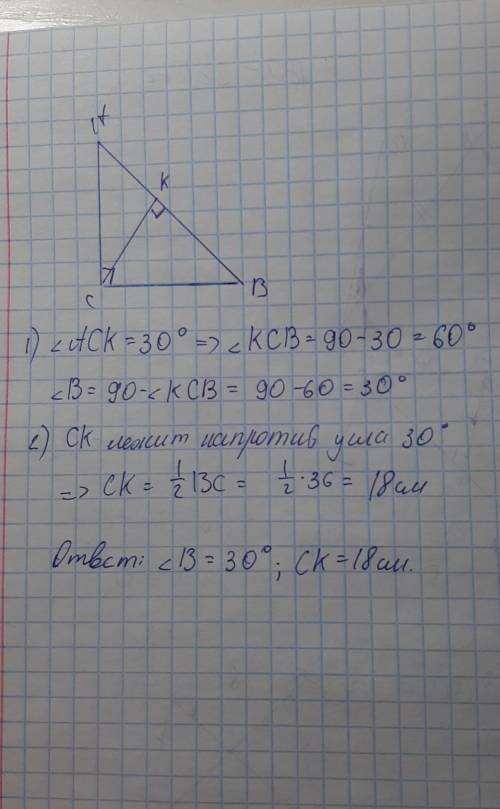 A
K
C
B
1) ∠ACK = 30° => ∠KCB = 90 - 30 = 60°
∠B = 90 - ∠KCB = 90 - 60 = 30°
2) CK лежит напротив угла 30°
=> CK = 1/2 BC = 1/2 · 36 = 18 см
Ответ: ∠B = 30°; CK = 18 см.